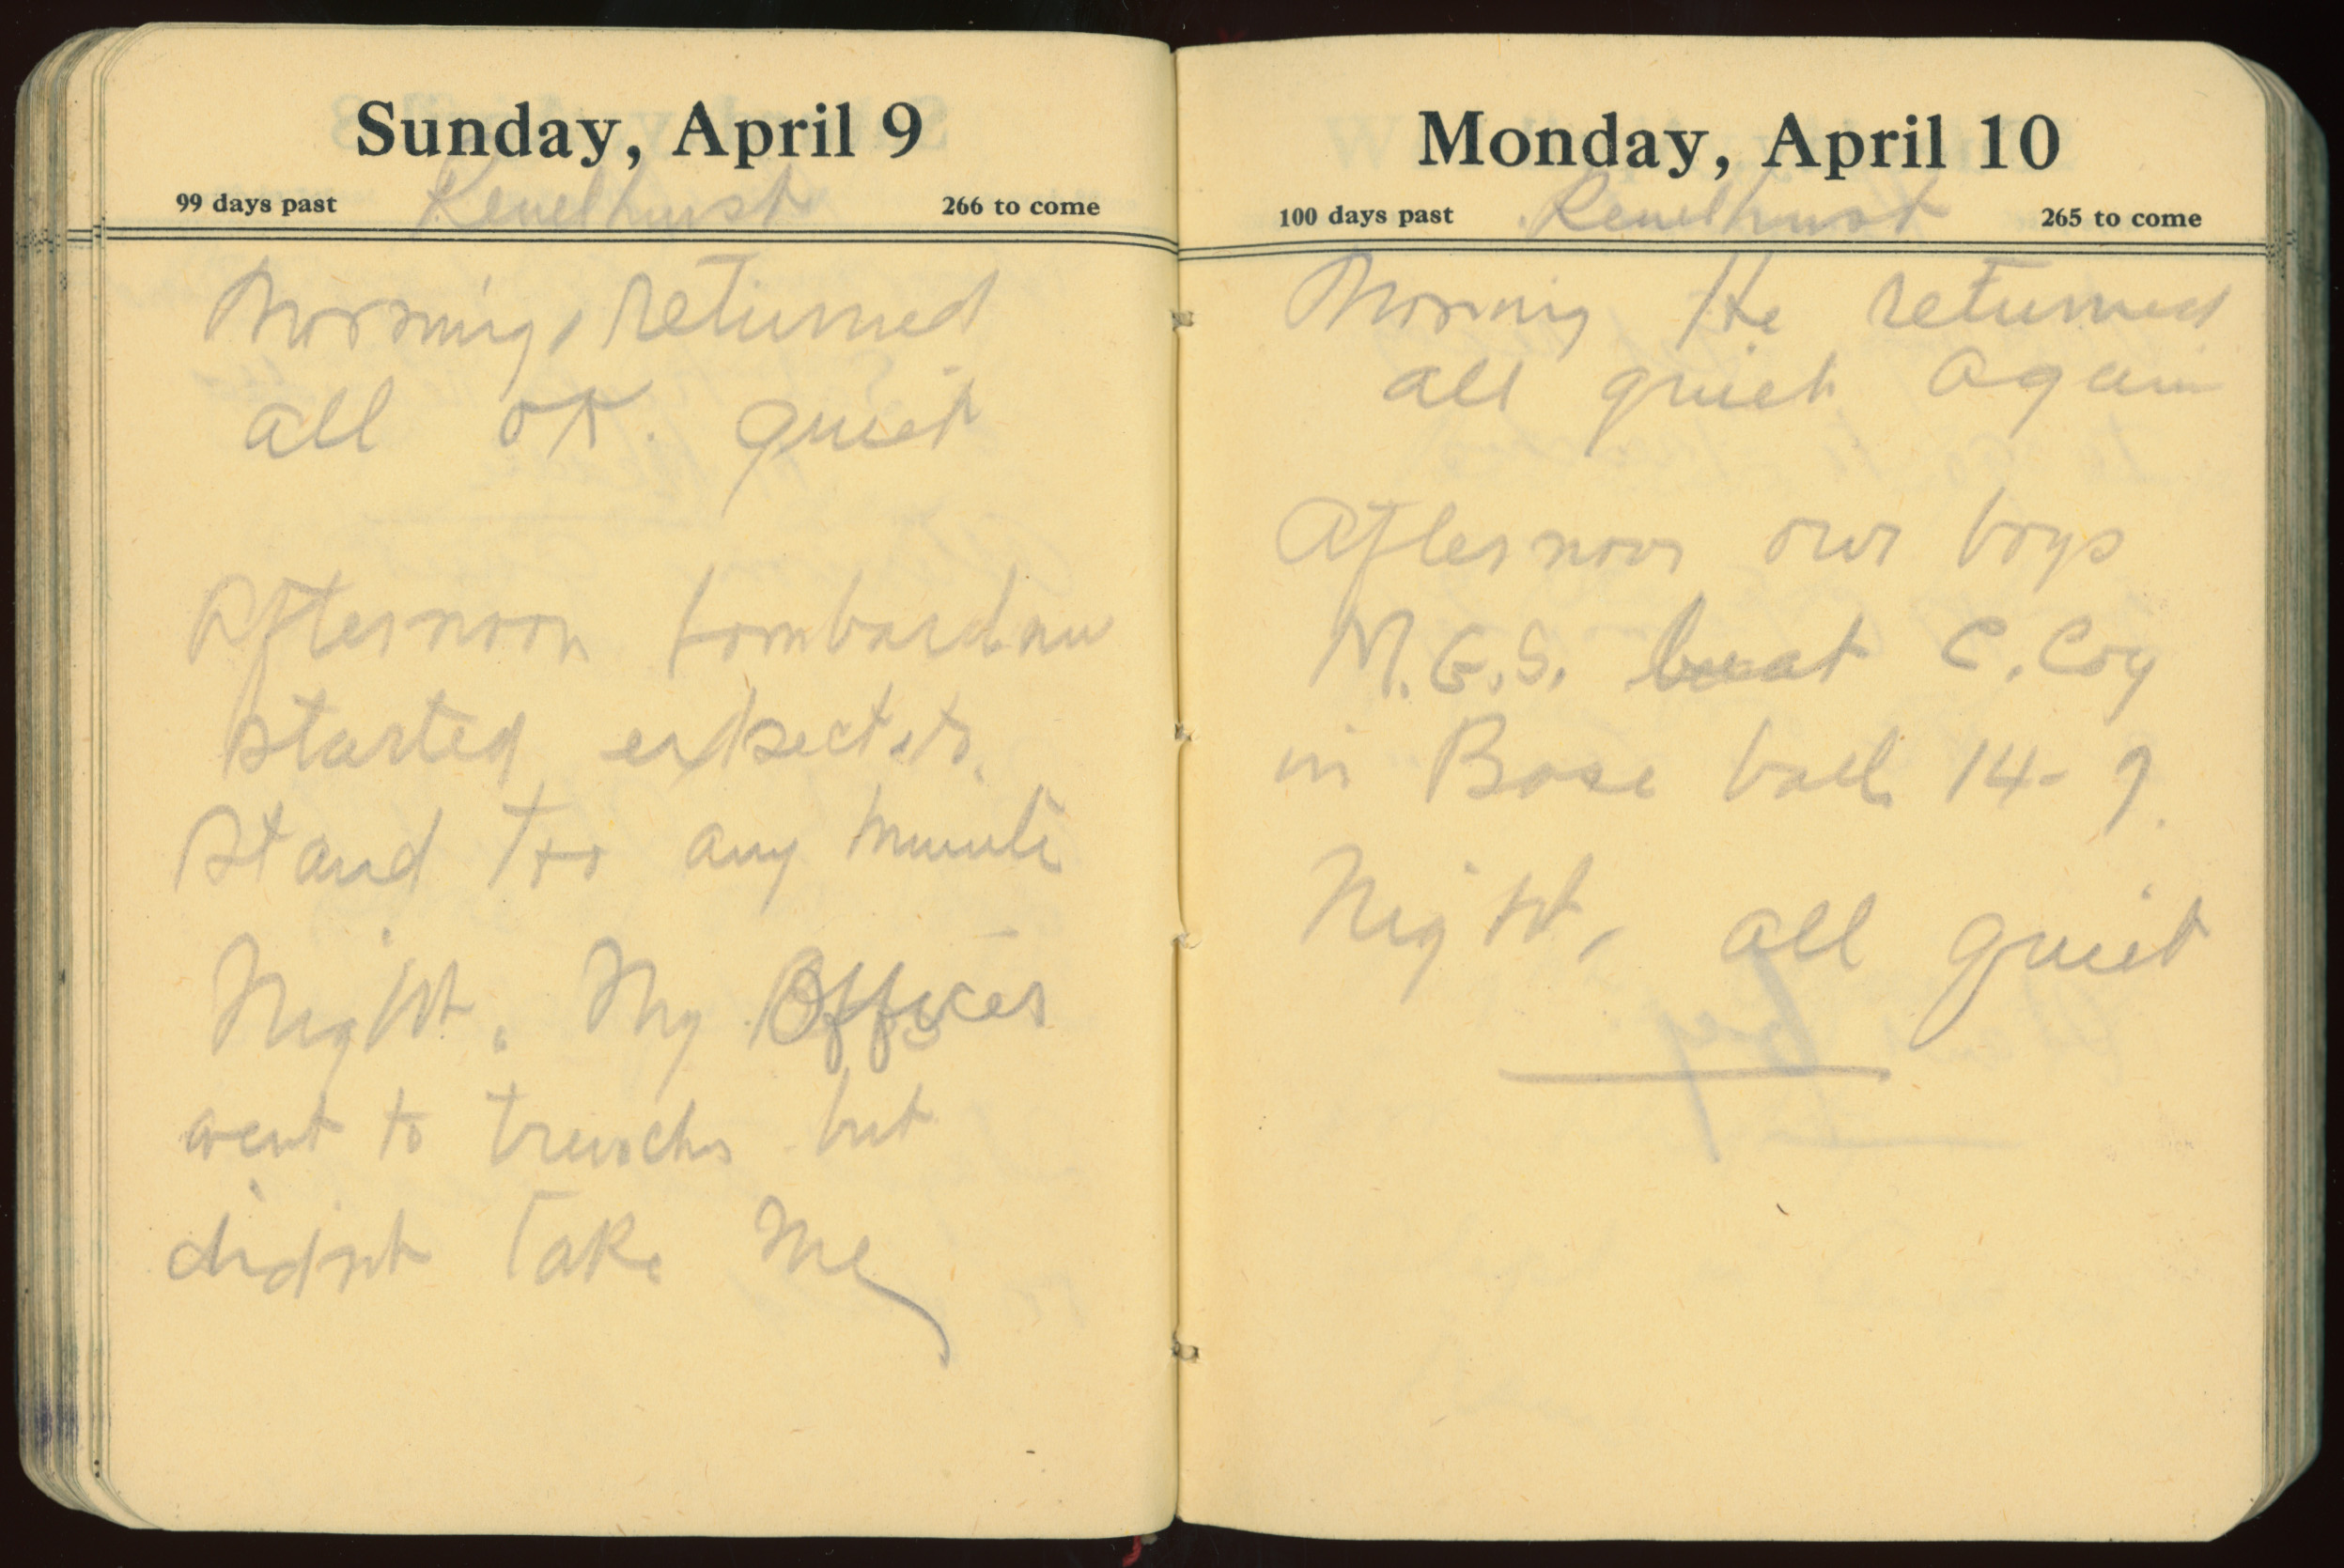 Sunday, April 9
99 days past Kenelhurst 266 to come
Morning, returned
all OK. quiet
Afternoon bombardm
started expect to
stand too any minute
Night. My Officer
went to trenches but
didnt take me
Monday, April 10
100 days past Kenelhurst 265 to come
Morning He returned
all quiet again
Afternoon our boys
M.G.S. beat C. Coy
in Base ball 14-9
Night, all quiet